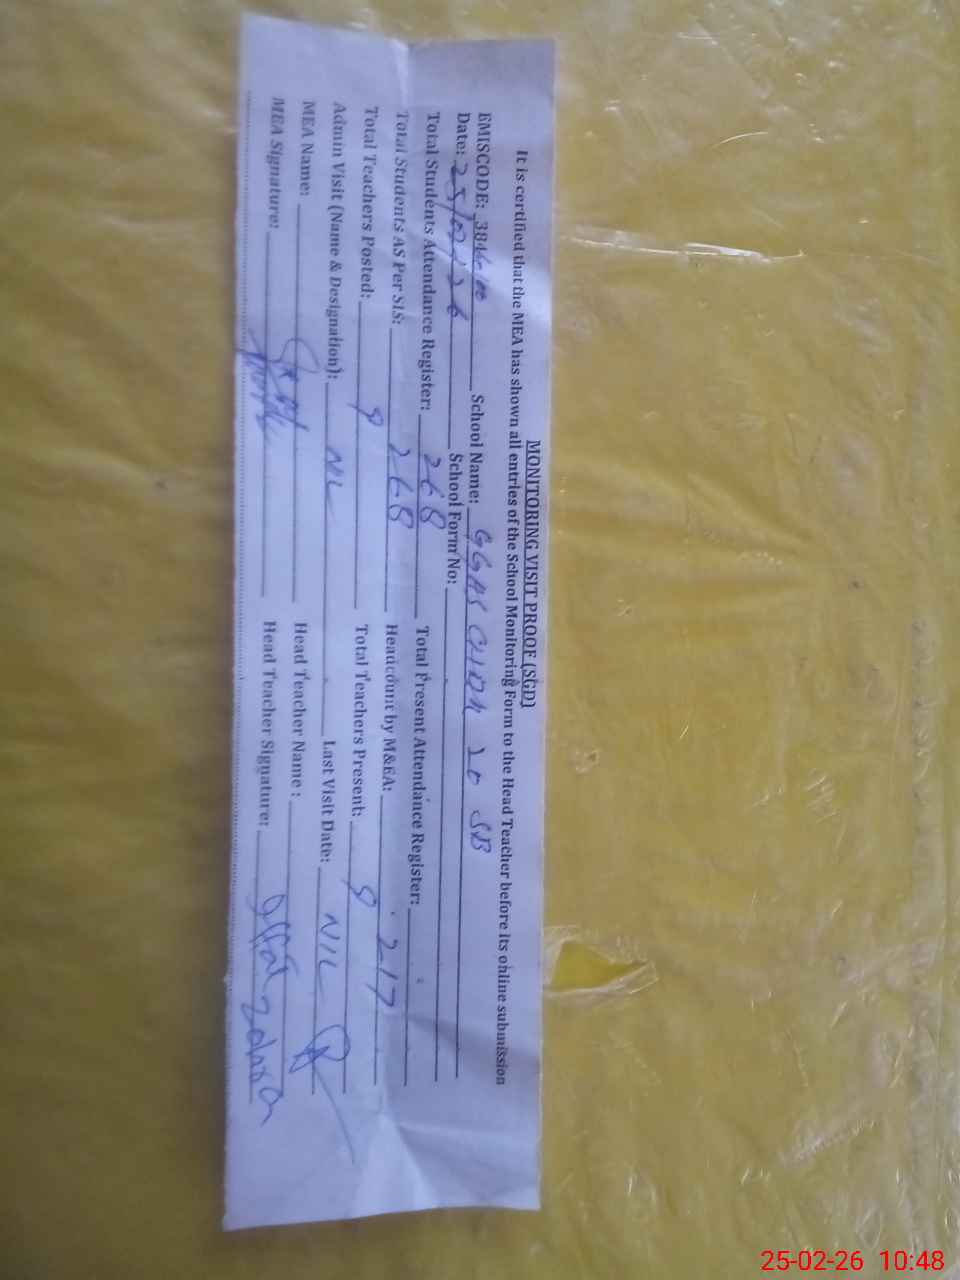 MONITORING VISIT PROOF (SGD)
It is certified that the MEA has shown all entries of the School Monitoring Form to the Head Teacher before its online submission
EMISCODE: School Name: GGHS CHAK 20 SB
Date: 25/02/26 School Form No:
Total Students Attendance Register: 268 Total Present Attendance Register:
Total Students AS Per SIS: 268 Headcount by M&EA: 217
Total Teachers Posted: 9 Total Teachers Present: 9
Admin Visit (Name & Designation): NIL Last Visit Date: NIL
MEA Name: Head Teacher Name :
MEA Signature: Head Teacher Signature:
25-02-26 10:48